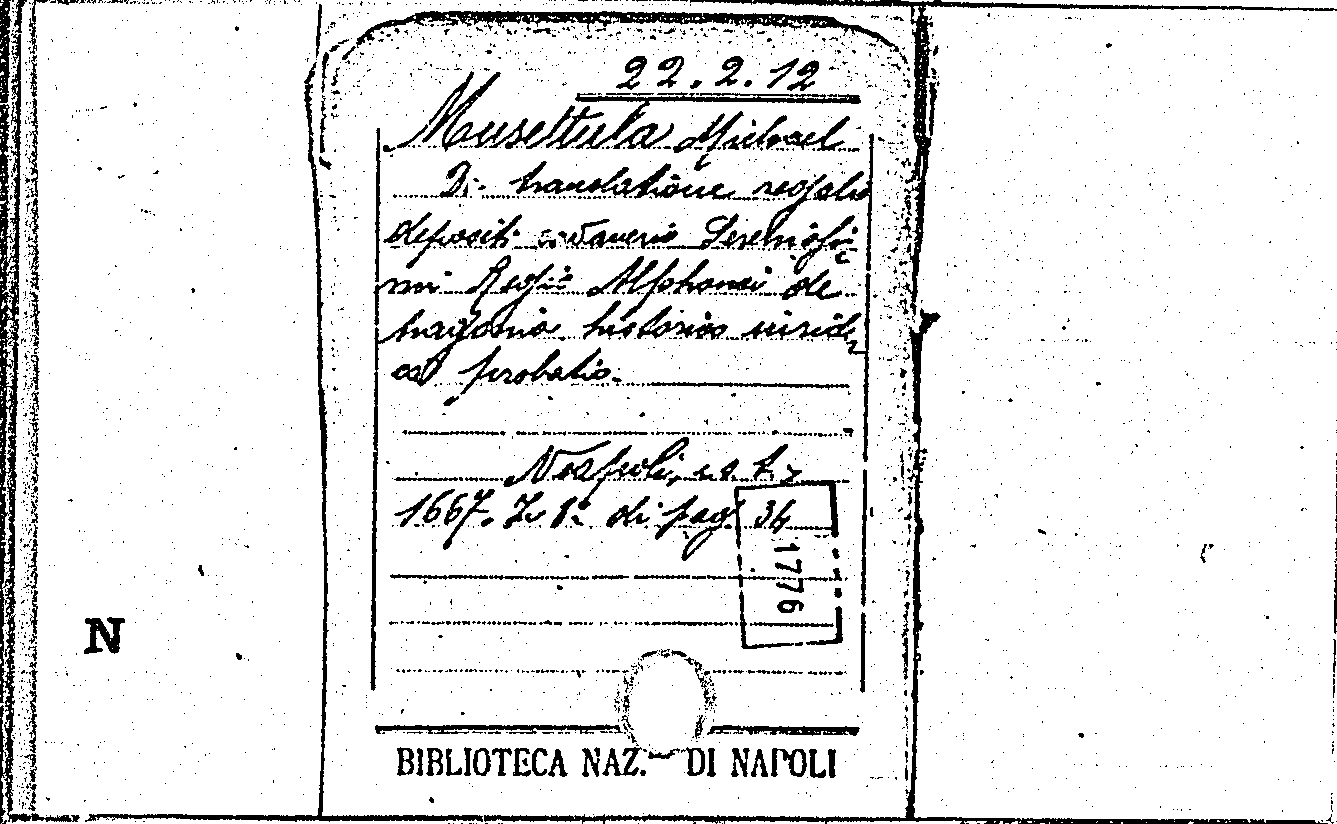 22.2.12
Musettula Michael
De translatione regalis
depositi cadaveris Serenissi
mi Regis Alphonsi de
Aragonia historica
probatio.
Napoli, s. t.
1667. In 8º di pag. 34
1776
N
BIBLIOTECA NAZ. DI NAPOLI